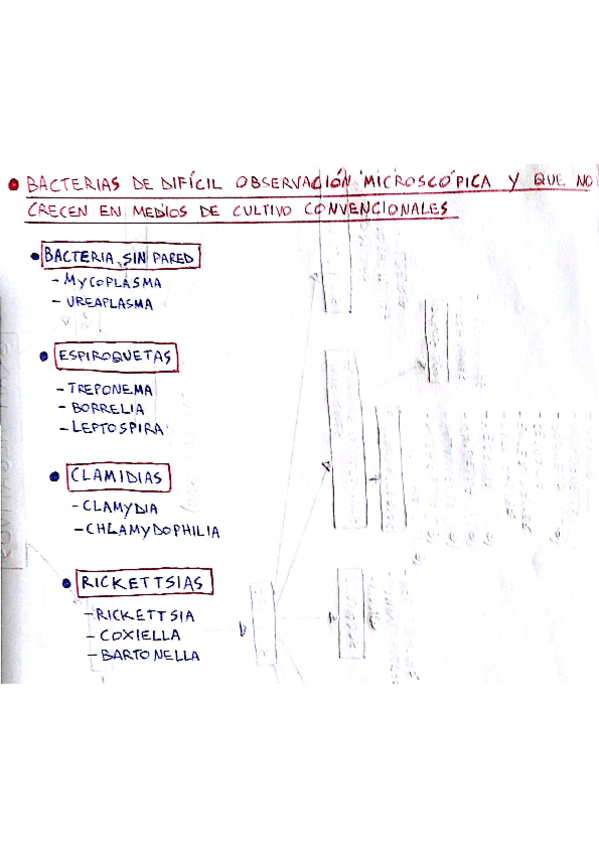 BACTERIAS DE DIFÍCIL OBSERVACIÓN MICROSCÓPICA Y QUE NO
CRECEN EN MEDIOS DE CULTIVO CONVENCIONALES
BACTERIA SIN PARED
- MYCOPLASMA
- UREAPLASMA
ESPIROQUETAS
- TREPONEMA
- BORRELIA
- LEPTOSPIRA
CLAMIDIAS
- CLAMYDIA
- CHLAMYDOPHILIA
RICKETTSIAS
- RICKETTSIA
- COXIELLA
- BARTONELLA